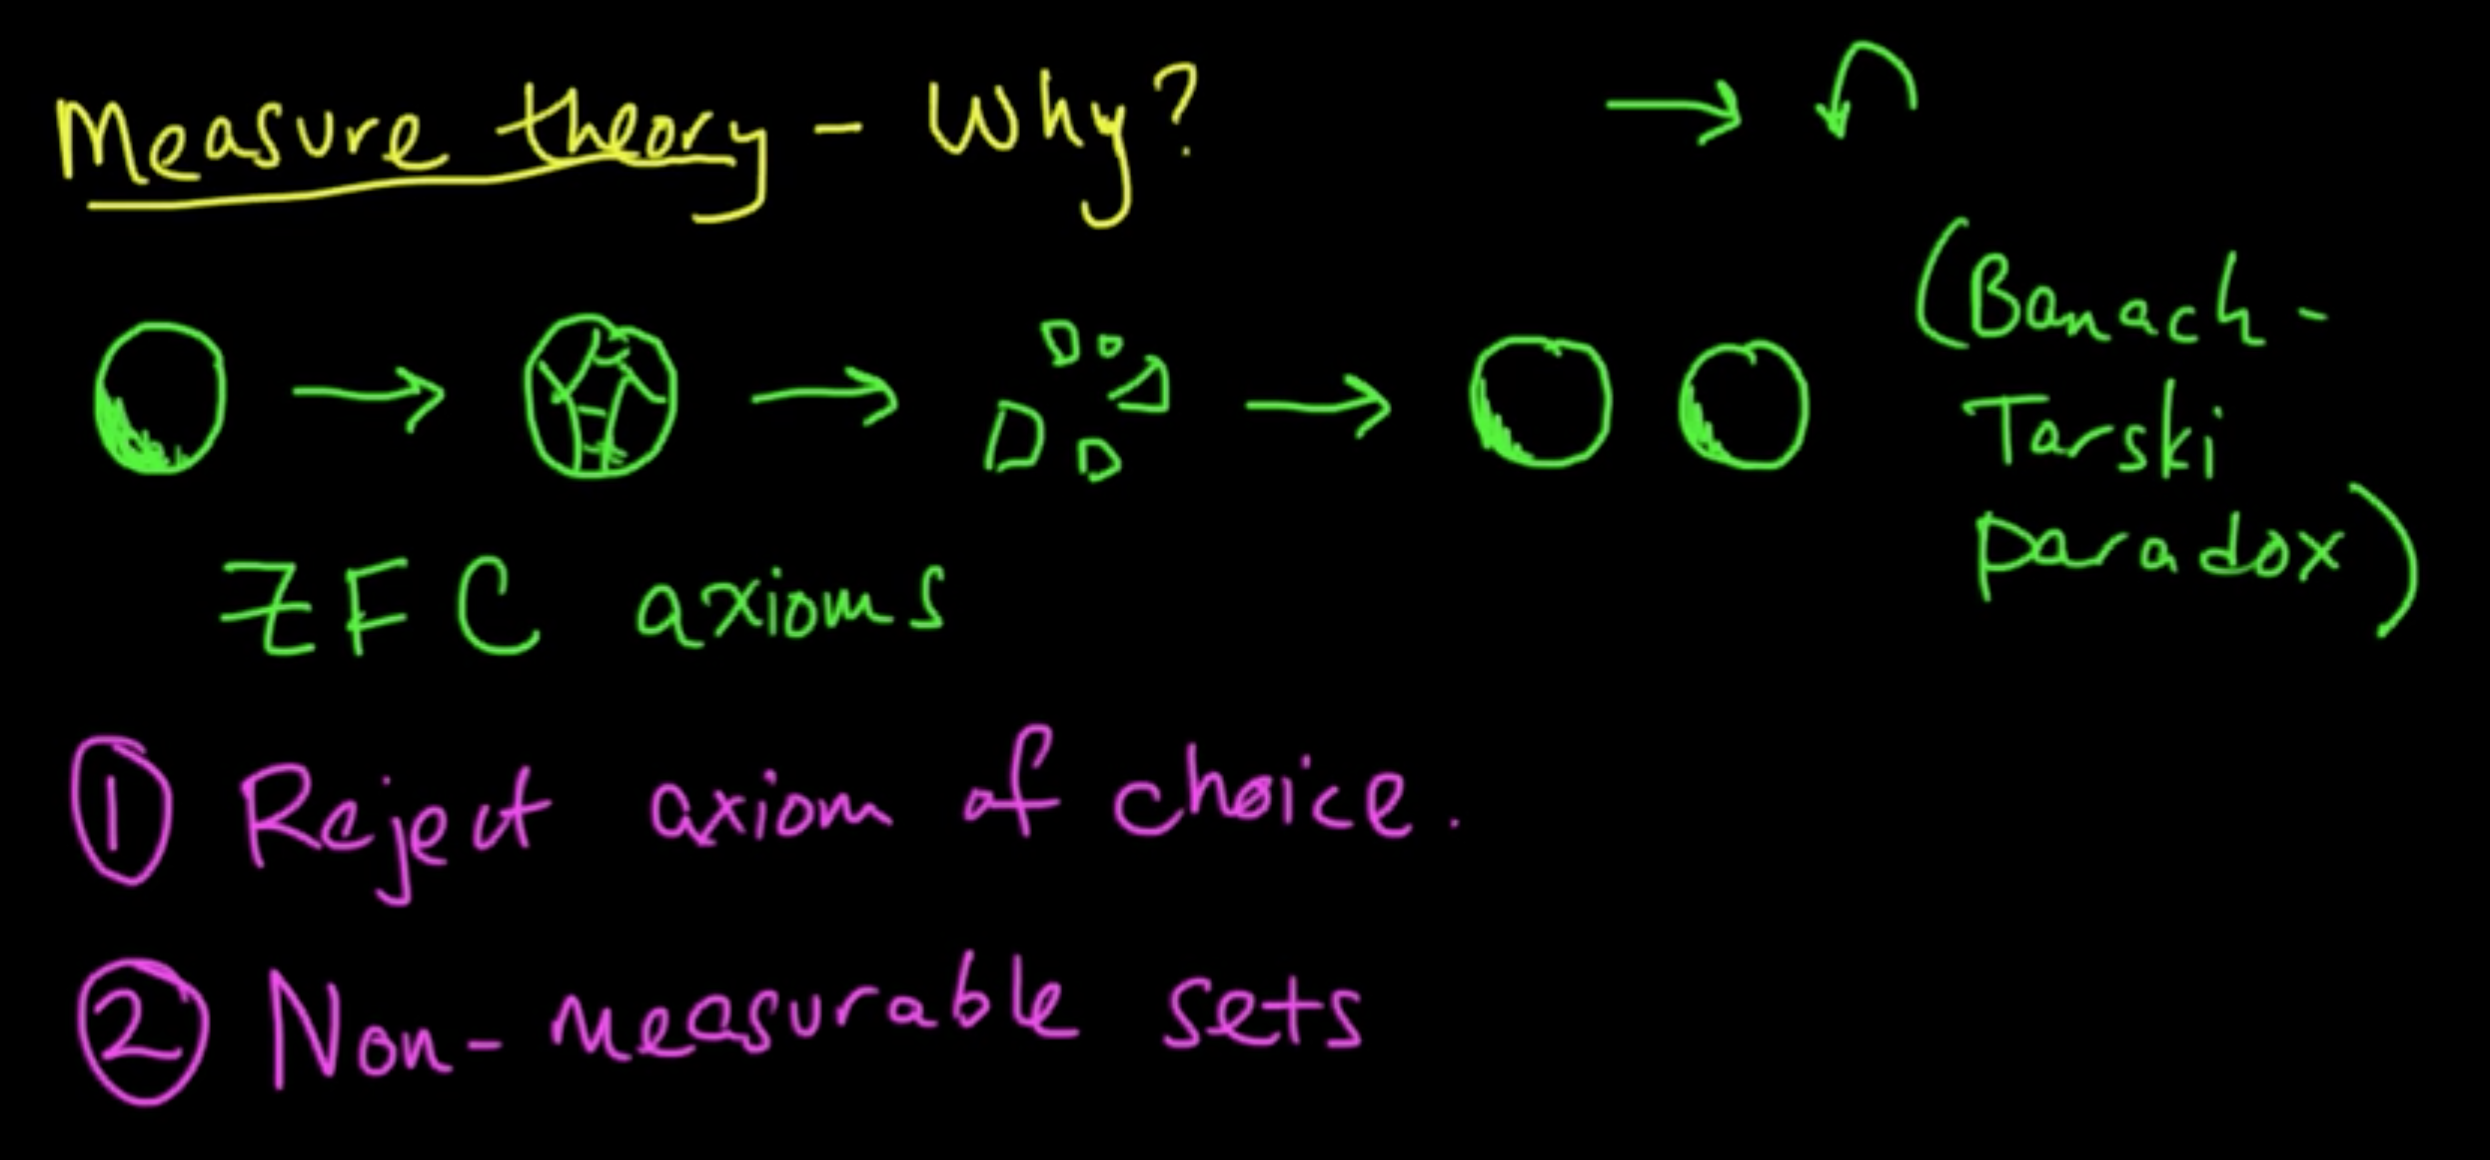 Measure theory - Why?
(Banach-
Tarski
paradox)
ZFC axioms
① Reject axiom of choice.
② Non-measurable sets